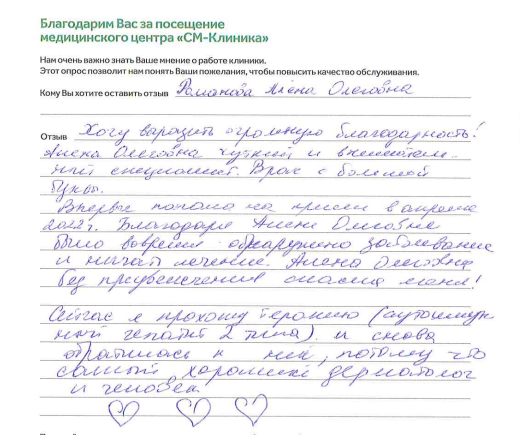 Благодарим Вас за посещение
медицинского центра «СМ-Клиника»
Нам очень важно знать Ваше мнение о работе клиники.
Этот опрос позволит нам понять Ваши пожелания, чтобы повысить качество обслуживания.
Кому Вы хотите оставить отзыв Романова Алена Олеговна
Отзыв Хочу выразить огромную благодарность!
Алена Олеговна чуткий и вниматель-
ный специалист. Врач с большой
буквы.
Впервые попала на прием в апреле
2022 г. Благодаря Алене Олеговне
было вовремя обнаружено заболевание
и начато лечение. Алена Олеговна
без преувеличения спасла меня!
Сейчас я прохожу терапию (аутоиммун
ный гепатит 2 типа) и снова
обратилась к ней, потому что
самый хороший дерматолог
и человек.